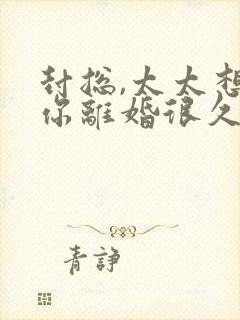 封总,太太想
你離婚很久
青諍